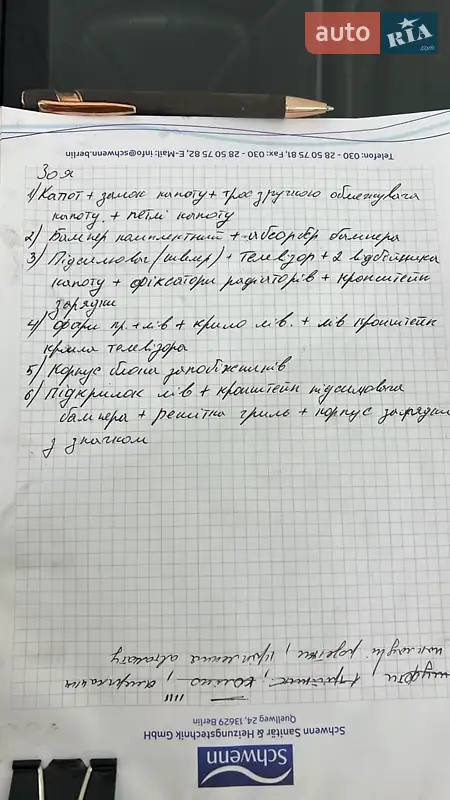 auto RIA.com
Telefon: 030 - 28 50 75 81, Fax: 030 - 28 50 75 82, E-Mail: info@schwenn.berlin
Зоя
1) Капот + замок капоту + трос з ручкою обмежувача
капоту + петлі капоту
2) Бампер комплектний + абсорбер бампера
3) Підсилювач (швелер) + телевізор + 2 відбійника
капоту + фіксатори радіаторів + кронштейн
зарядки
4) Фари пр. + лів + крило лів. + лів кронштейн
крила телевізора
5) Корпус блока запобіжників
6) Підкрилок лів + кронштейн підсилювача
бампера + решітка гриль + корпус зарядки
з значком
Schwenn
Schwenn Sanitär & Heizungstechnik GmbH
Quellweg 24, 13629 Berlin
муфти, трійник, коліно,
розетки, кріплення